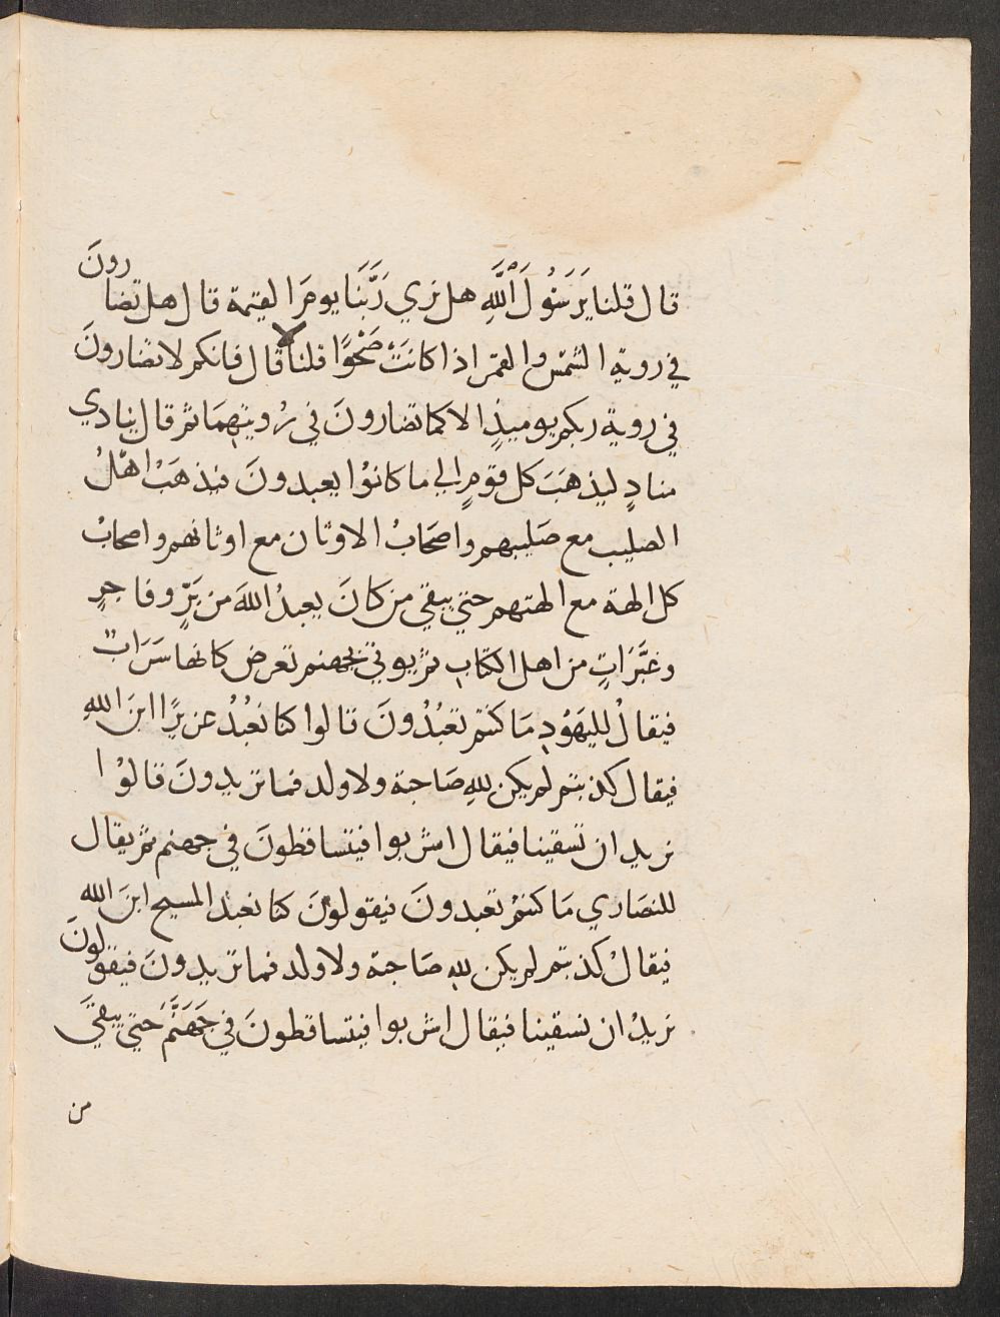 قال قلنا يرَسُولَ اللَّهِ هل نري رَبَّنَا يومَ القيمة قال هل تضارونَ
في روية الشمس والقمر اذا كانَتْ صَحْوًا قلنا لا قال فانكم لا تضارونَ
في روية ربكم يوميذٍ الا كما تضارونَ في رُويتِهِمَا ثم قال ينادي
منادٍ ليذهَبَ كل قومٍ الي ما كانوْا يعبدونَ فيذهَبُ اهْلُ
الصليب مع صَليبهم واصحَابُ الاوثان مع اوثانهم واصحابُ
كل الهة مع الهتهم حتي يبقي من كانَ يعبدُ اللهَ من بَرٍّ وفاجرٍ
وغبَّرَاتٍ من اهل الكتابِ ثم يوتي بجهنم تعرض كانها سَرَابٌ
فيقالُ لليهَوُدِ مَا كنتمْ تعَبُدُونَ قالوا كنا نعَبُدُ عزيرًا ابنَ اللهِ
فيقال كذبتم لم يكن للهِ صَاحبة ولا ولد فما تريدونَ قالوْا
نريد ان تسقينا فيقال اشربوا فيتساقطونَ في جهنم ثم يقال
للنصَاري مَا كنتمْ تعبدونَ فيقولونَ كنا نعبدُ المسيح ابنَ الله
فيقالُ كذبتم لم يكن للهِ صَاحبة ولا ولد فما تريدونَ فيقولونَ
نريدُ ان تسقينا فيقال اشربوا فيتساقطونَ في جَهَنَّمَ حتي يبقيَ
من